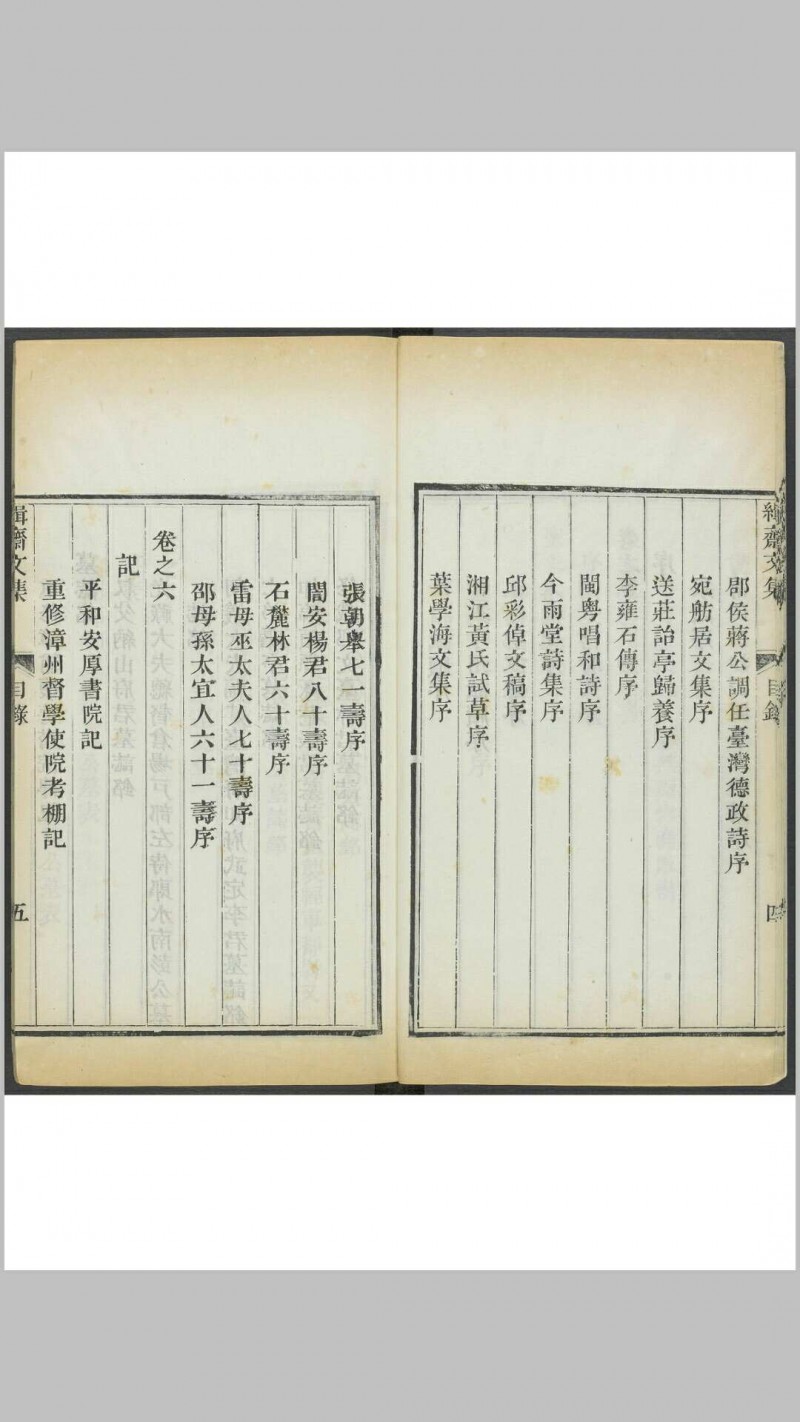 緝齋文集
目錄
四
郡侯蔣公調任臺灣德政詩序
宛舫居文集序
送莊詒亭歸養序
李雍石傳序
閩粵唱和詩序
今雨堂詩集序
邱彩倬文稿序
湘江黃氏試草序
葉學海文集序
張朝舉七一壽序
誾安楊君八十壽序
石麓林君六十壽序
雷母巫太夫人七十壽序
邵母孫太宜人六十一壽序
卷之六
記
平和安厚書院記
重修漳州督學使院考棚記
緝齋文集
目錄
五